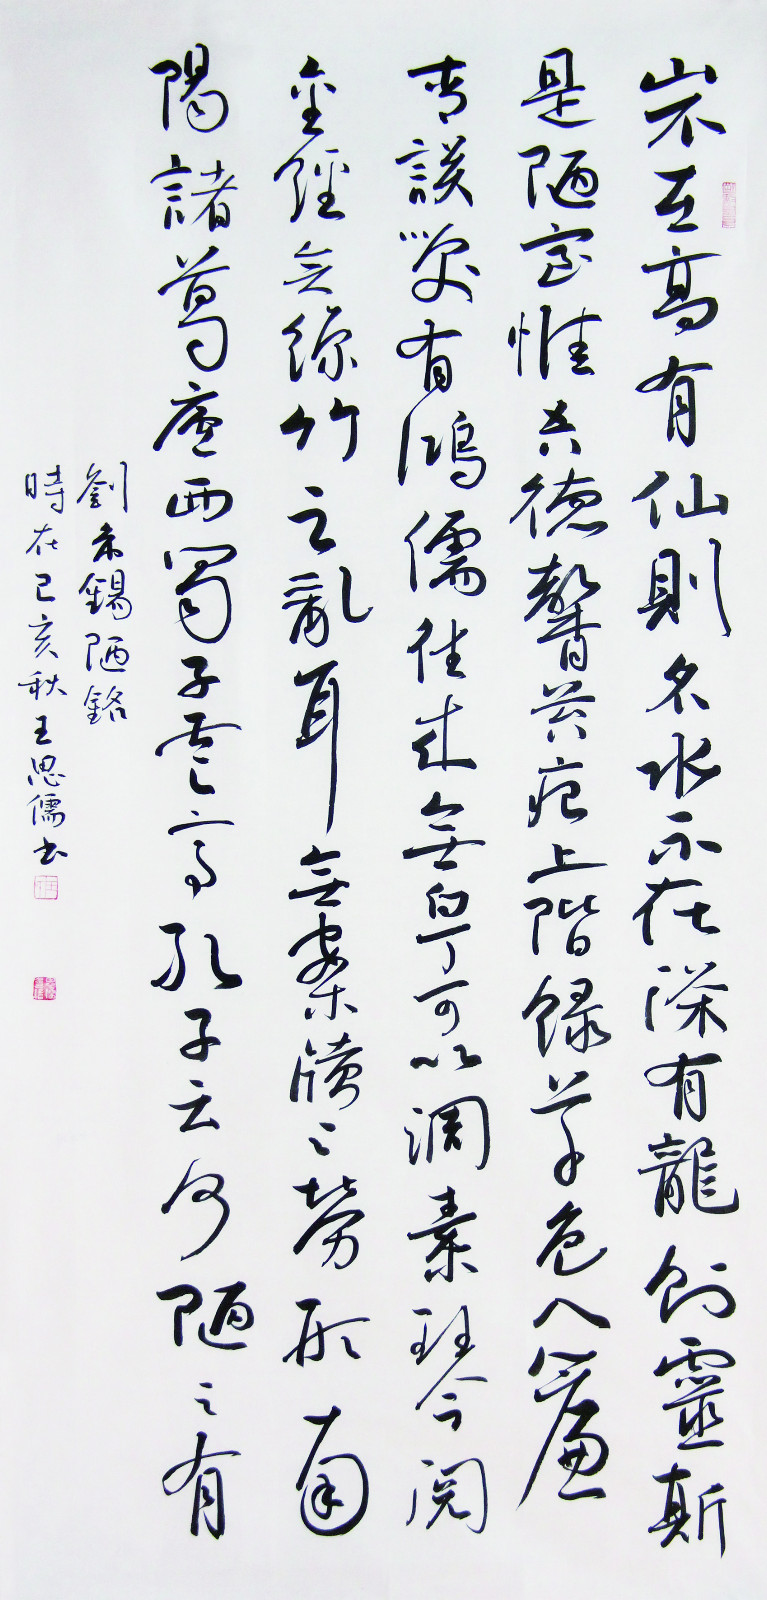 山不在高有仙則名水不在深有龍則靈斯
是陋室惟吾德馨苔痕上階緑草色入簾
青談笑有鴻儒往来無白丁可以調素琴閲
金經無絲竹之亂耳無案牘之勞形南
陽諸葛廬西蜀子雲亭孔子云何陋之有
劉禹錫陋銘
時在己亥秋王思儒書